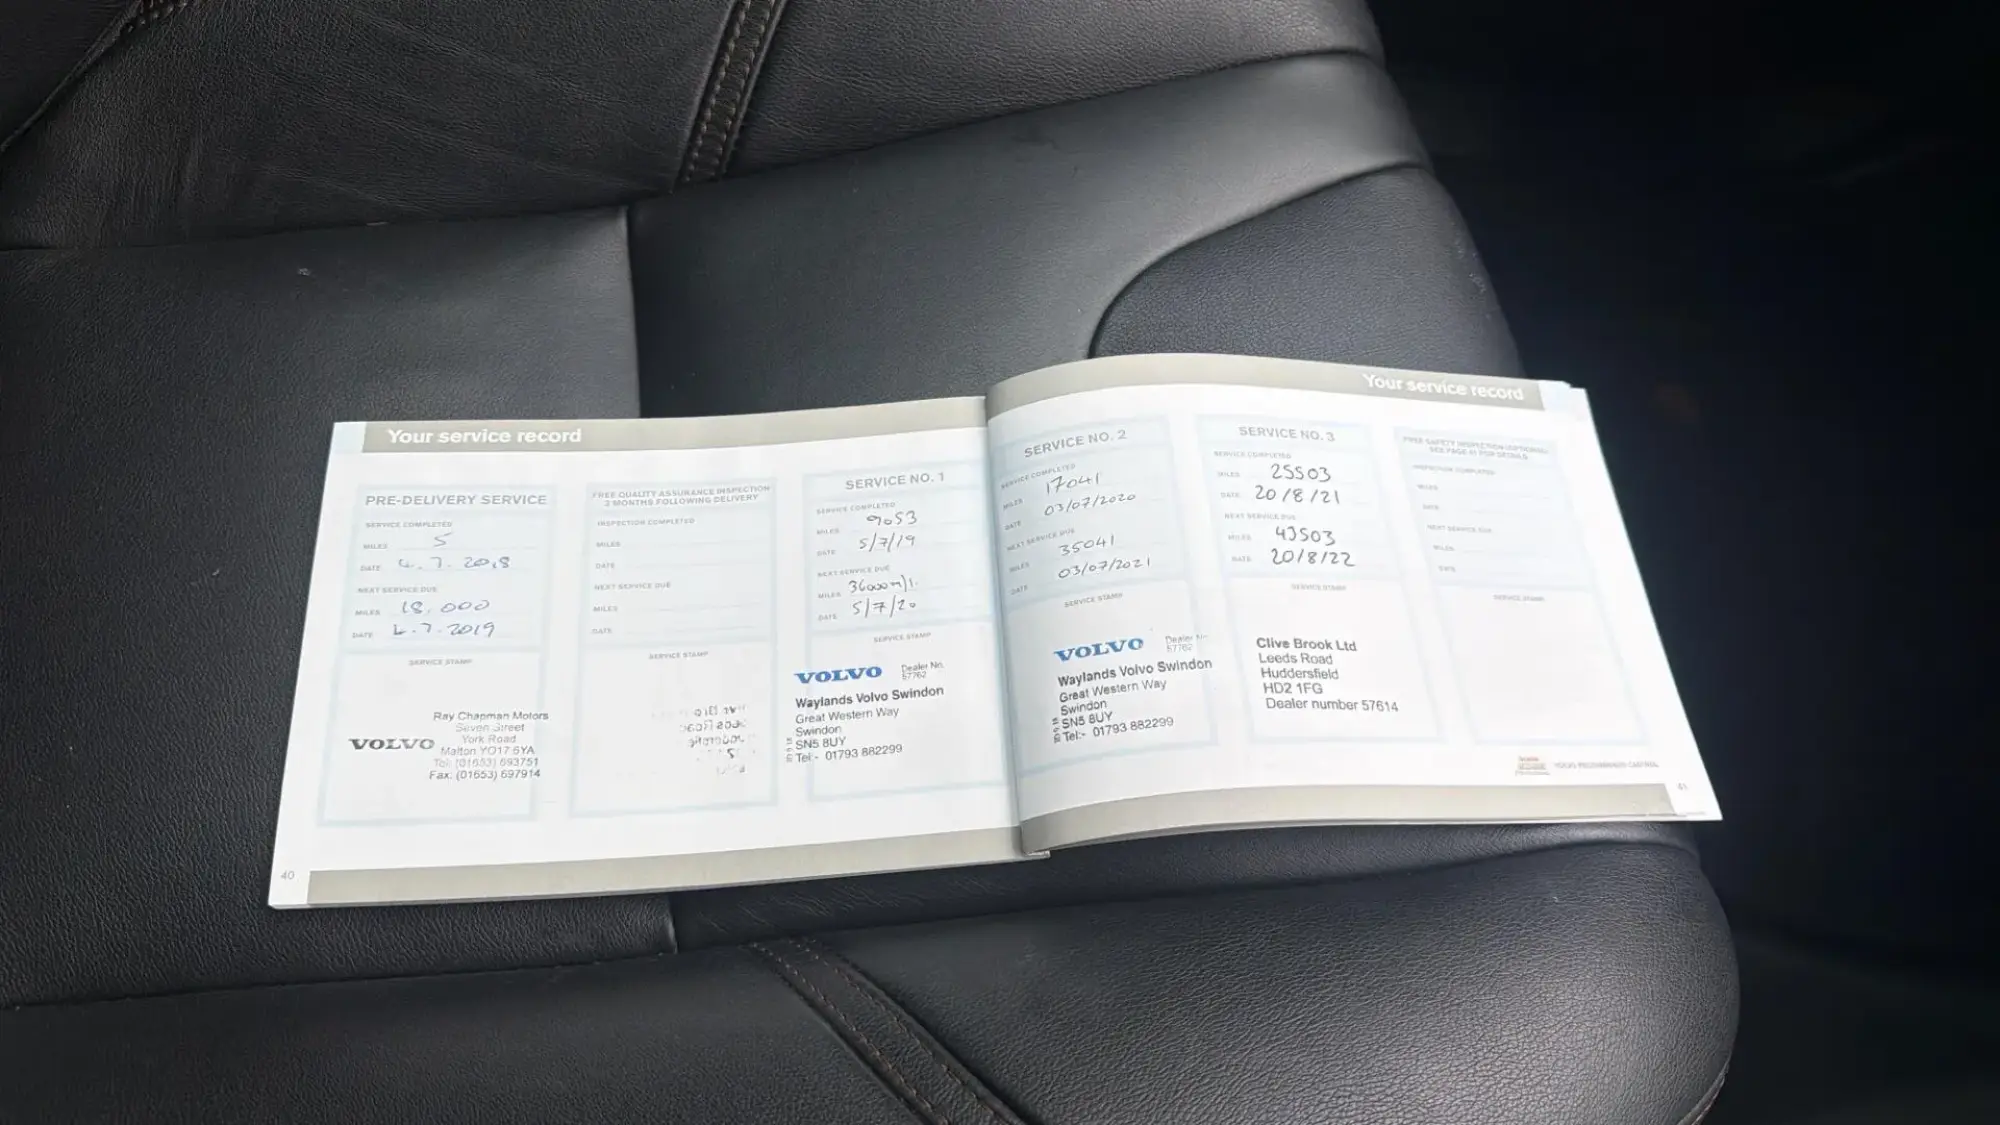 Your service record
PRE-DELIVERY SERVICE
SERVICE COMPLETED
MILES 5
DATE 4.7.2018
NEXT SERVICE DUE
MILES 18,000
DATE 4.7.2019
SERVICE STAMP
VOLVO
Ray Chapman Motors
Seven Street
York Road
Malton YO17 6YA
Tel: (01653) 693751
Fax: (01653) 697914
40
FREE QUALITY ASSURANCE INSPECTION
3 MONTHS FOLLOWING DELIVERY
INSPECTION COMPLETED
MILES
DATE
NEXT SERVICE DUE
MILES
DATE
SERVICE STAMP
SERVICE NO. 1
SERVICE COMPLETED
MILES 9053
DATE 5/7/19
NEXT SERVICE DUE
MILES 36000m/l.
DATE 5/7/20
SERVICE STAMP
VOLVO
Dealer No.
57762
Waylands Volvo Swindon
Great Western Way
Swindon
SN5 8UY
Tel:- 01793 882299
Your service record
SERVICE NO. 2
SERVICE COMPLETED
MILES 17041
DATE 03/07/2020
NEXT SERVICE DUE
MILES 35041
DATE 03/07/2021
SERVICE STAMP
VOLVO
Dealer No.
57762
Waylands Volvo Swindon
Great Western Way
Swindon
SN5 8UY
Tel:- 01793 882299
SERVICE NO. 3
SERVICE COMPLETED
MILES 25503
DATE 20/8/21
NEXT SERVICE DUE
MILES 43503
DATE 20/8/22
SERVICE STAMP
Clive Brook Ltd
Leeds Road
Huddersfield
HD2 1FG
Dealer number 57614
FREE SAFETY INSPECTION (OPTIONAL)
SEE PAGE 41 FOR DETAILS
INSPECTION COMPLETED
MILES
DATE
NEXT SERVICE DUE
MILES
DATE
SERVICE STAMP
VOLVO RECOMMENDS CASTROL
41